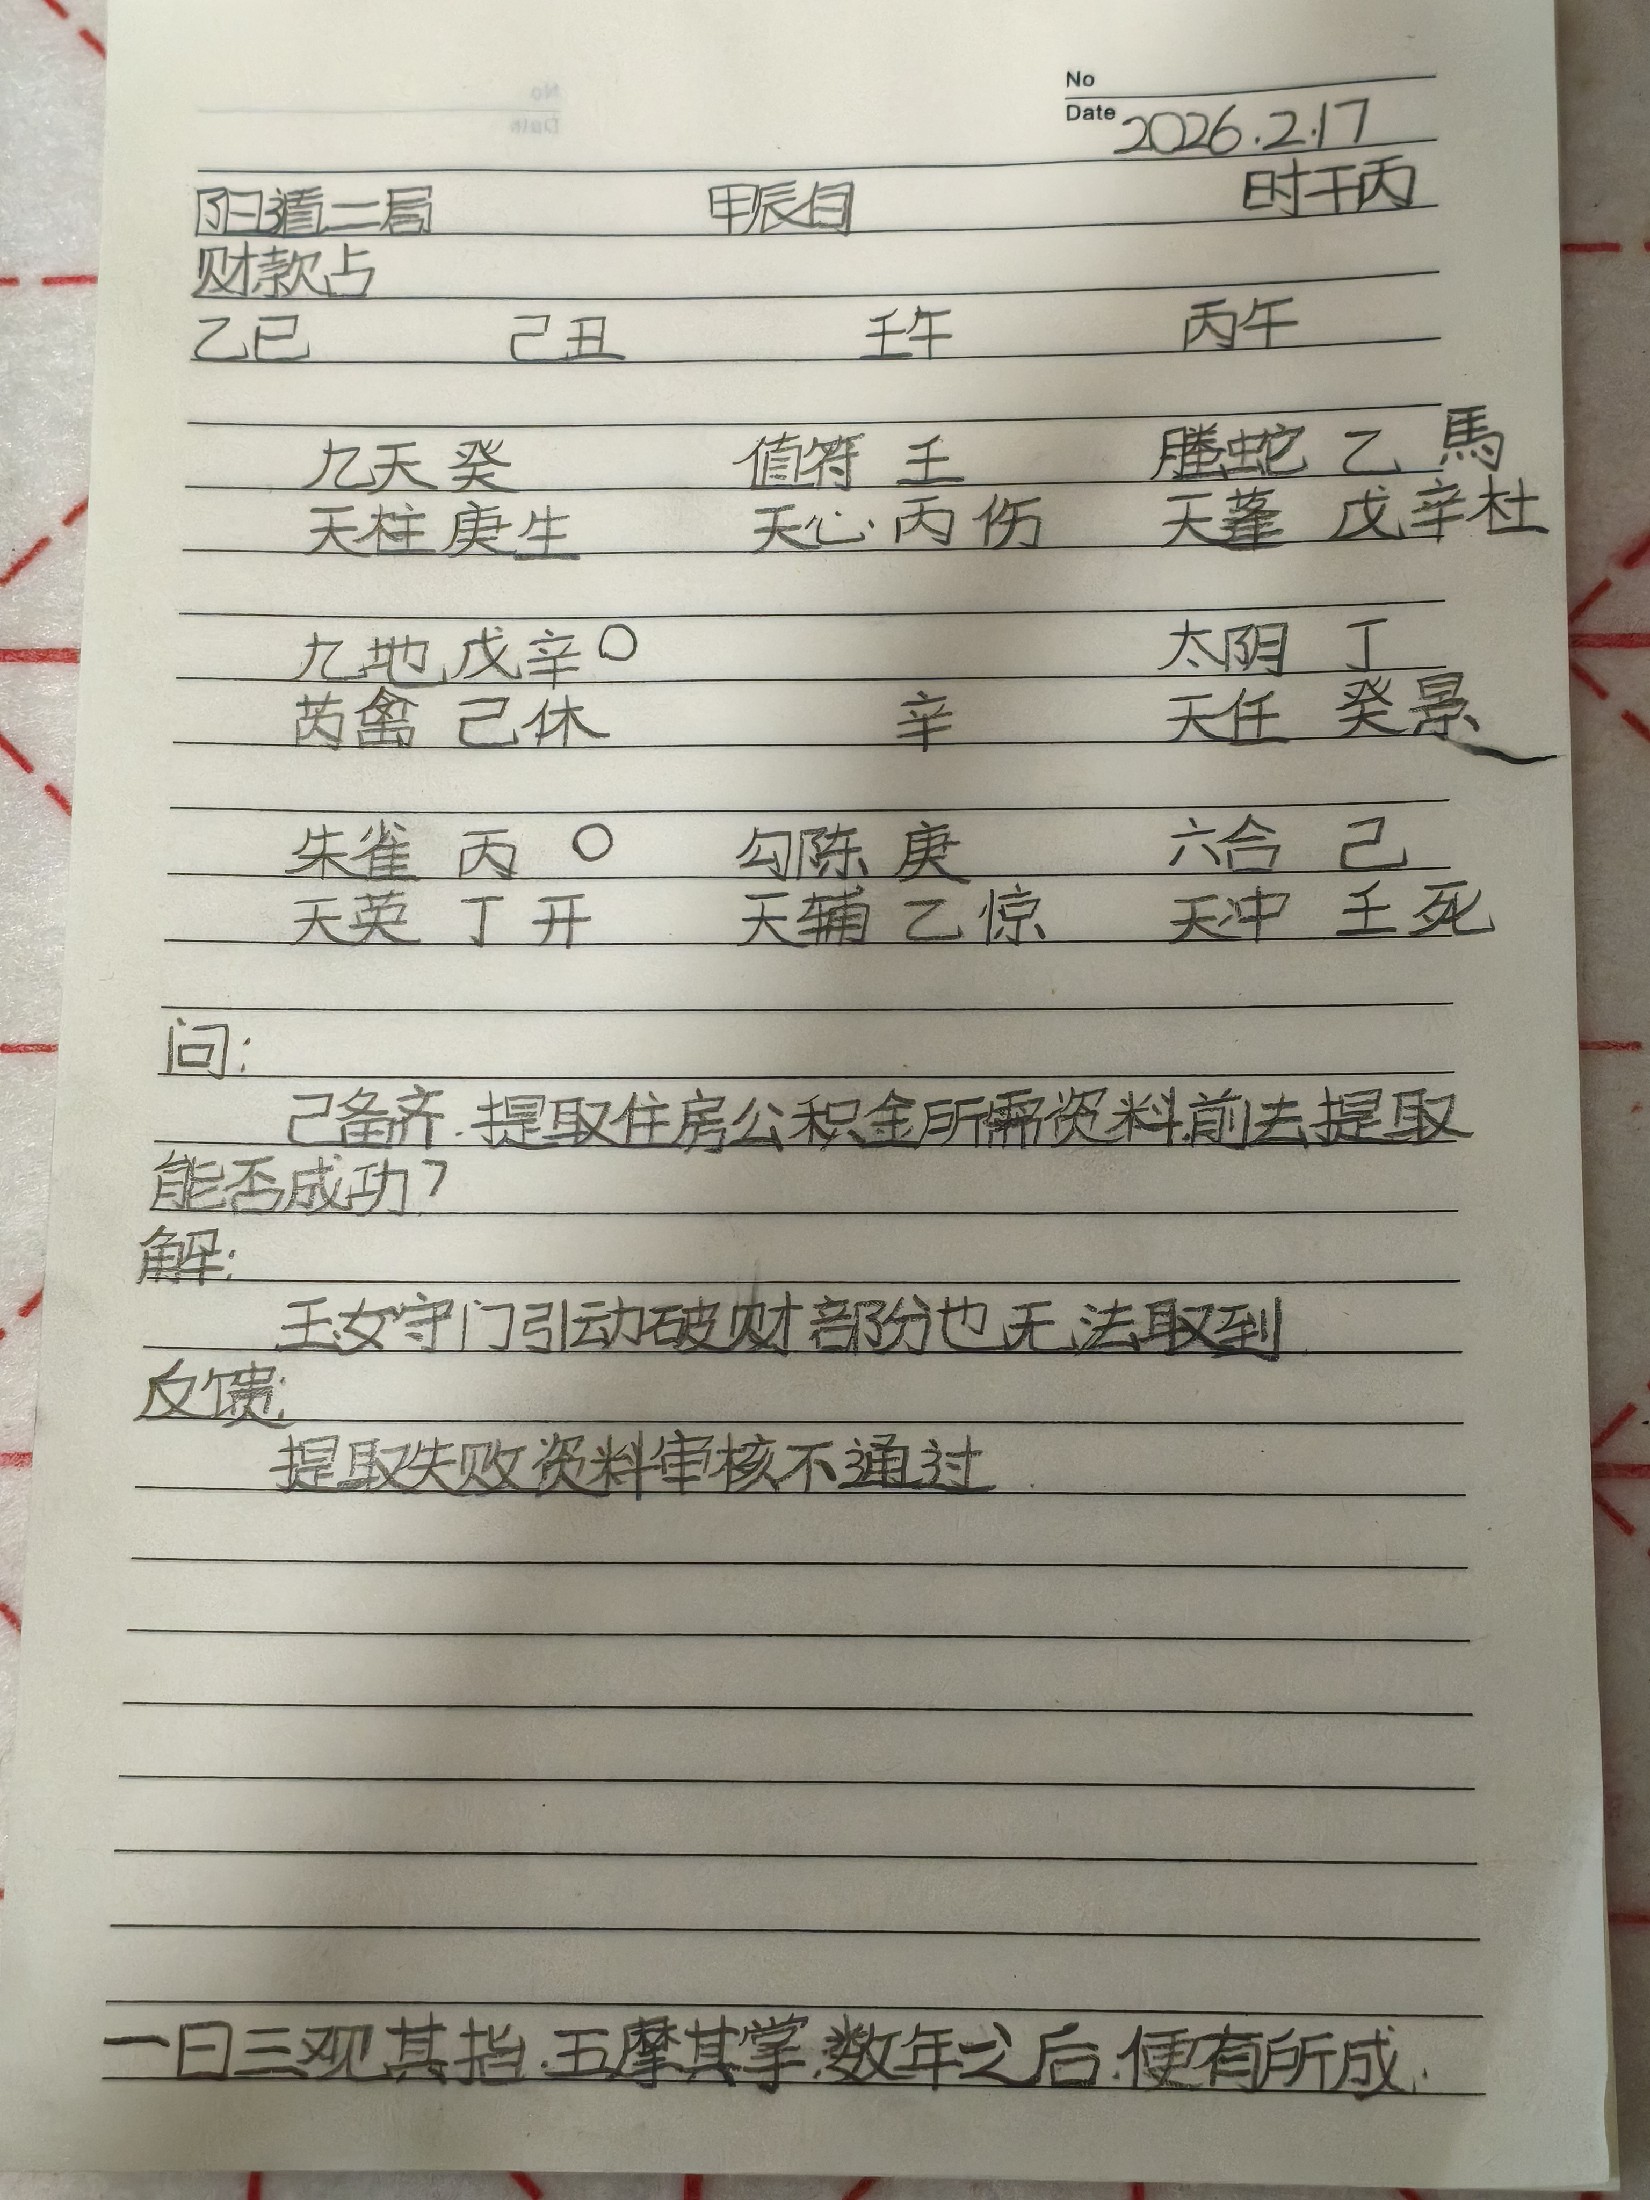 No
Date 2026.2.17
阳遁二局 甲辰旬 时干丙
财款占
乙巳 己丑 壬午 丙午
九天 癸 值符 壬 螣蛇 乙 馬
天柱 庚 生 天心 丙 伤 天蓬 戊辛 杜
九地 戊辛 〇 太阴 丁
芮禽 己 休 辛 天任 癸 景
朱雀 丙 〇 勾陈 庚 六合 己
天英 丁 开 天辅 乙 惊 天冲 壬 死
问:
己备齐.提取住房公积金所需资料,前去提取
能否成功?
解:
玉女守门引动破财部份也无法取到
反馈:
提取失败资料审核不通过
一日三观其指.五摩其掌.数年之后.便有所成.